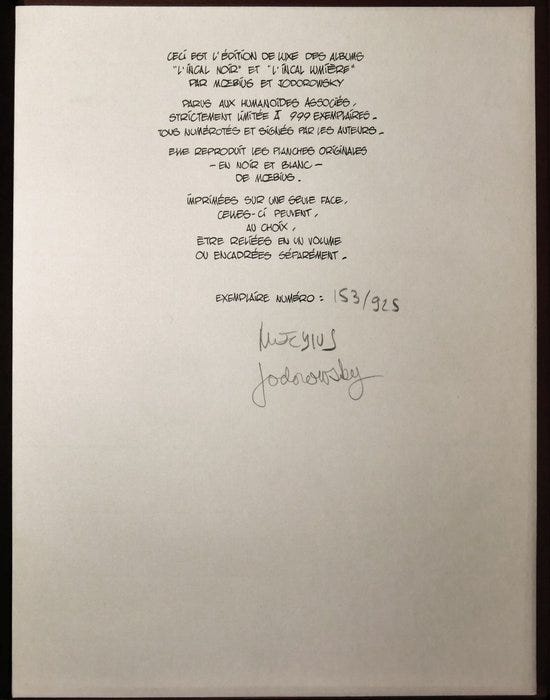 CECI EST L'ÉDITION DE LUXE DES ALBUMS
"L'INCAL NOIR" ET "L'INCAL LUMIÈRE"
PAR MŒBIUS ET JODOROWSKY
PARUS AUX HUMANOÏDES ASSOCIÉS,
STRICTEMENT LIMITÉE À 999 EXEMPLAIRES.
TOUS NUMÉROTÉS ET SIGNÉS PAR LES AUTEURS.
ELLE REPRODUIT LES PLANCHES ORIGINALES
- EN NOIR ET BLANC -
DE MŒBIUS.
IMPRIMÉES SUR UNE SEULE FACE,
CELLES-CI PEUVENT,
AU CHOIX,
ÊTRE RELIÉES EN UN VOLUME
OU ENCADRÉES SÉPARÉMENT.
EXEMPLAIRE NUMÉRO : 153/925
MŒBIUS
Jodorowsky